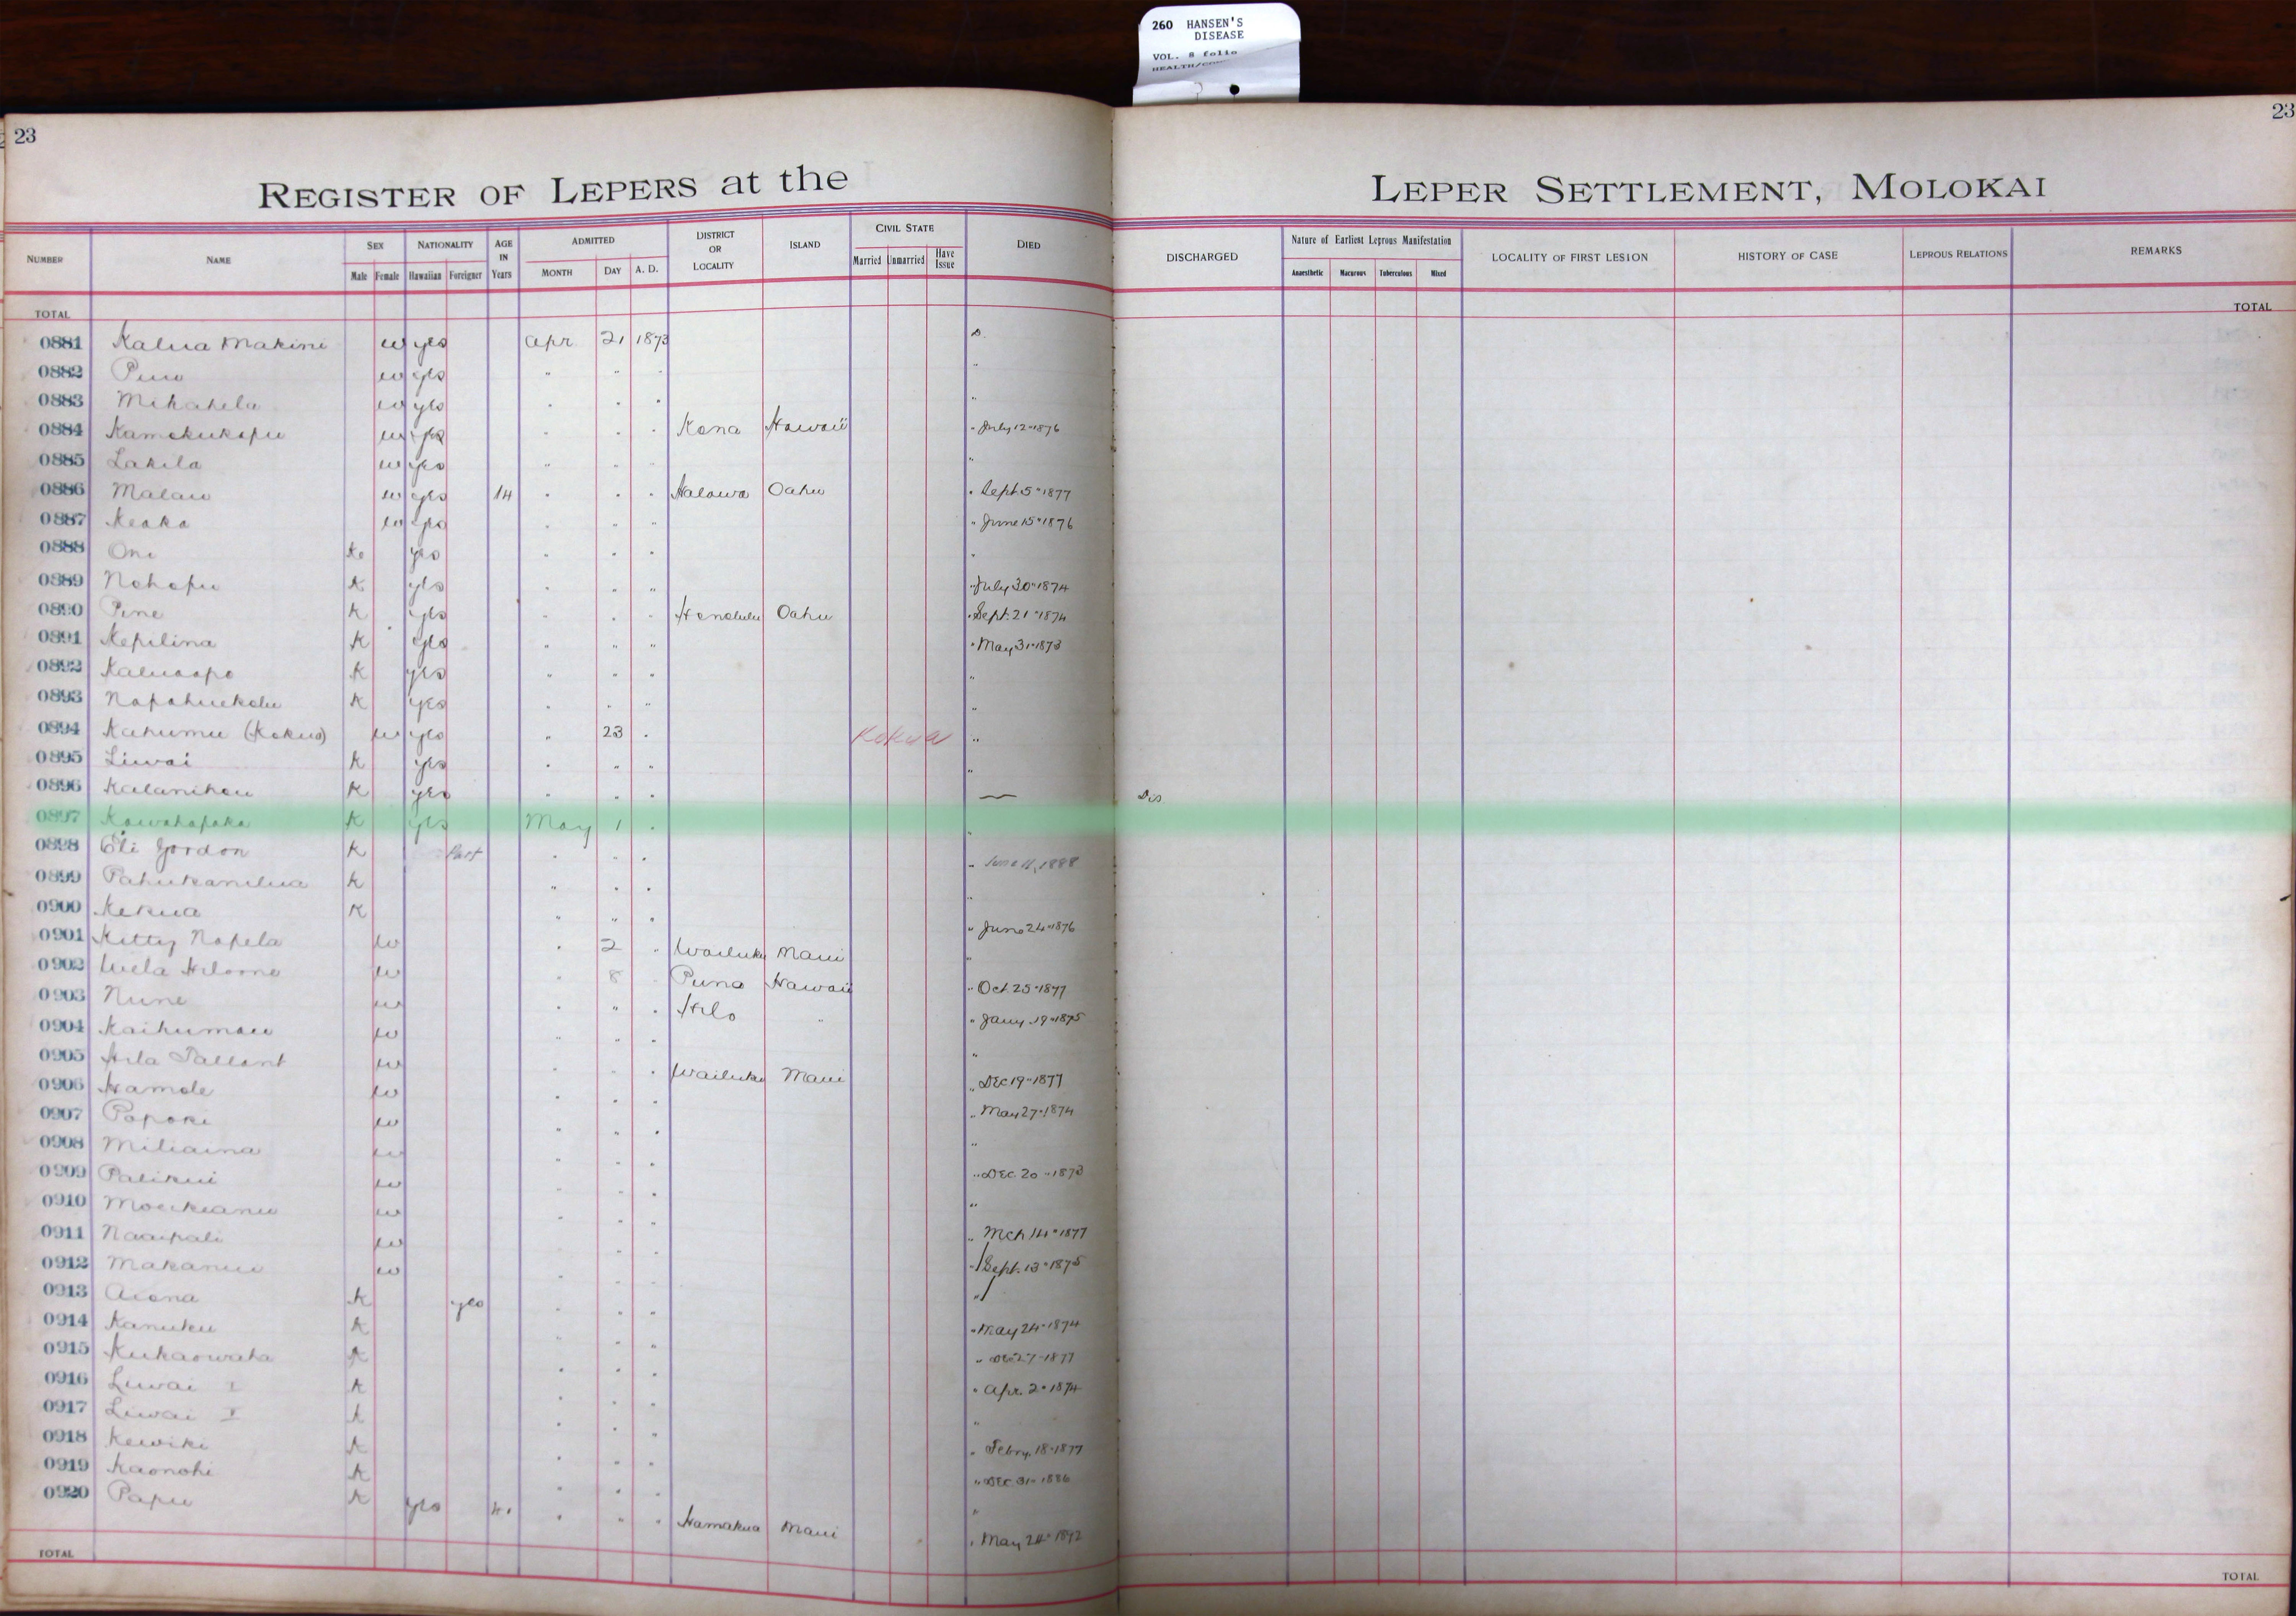 260 HANSEN'S
DISEASE
VOL. 8 folio
23
23
REGISTER OF LEPERS at the LEPER SETTLEMENT, MOLOKAI
NUMBER NAME SEX Male Female NATIONALITY Hawaiian Foreigner AGE IN Years ADMITTED MONTH DAY A. D. DISTRICT OR LOCALITY ISLAND CIVIL STATE Married Unmarried Have Issue DIED DISCHARGED Nature of Earliest Leprous Manifestation Anaesthetic Macurous Tuberculous Mixed LOCALITY OF FIRST LESION HISTORY OF CASE LEPROUS RELATIONS REMARKS
TOTAL TOTAL
0881 Kalua Makini w yes Apr 21 1873 D.
0882 w yes " " " "
0883 Mikahela w yes " " " "
0884 Kamokukapu w yes " " " Kona Hawaii " July 12" 1876
0885 Lakila w yes " " " "
0886 Malau w yes 14 " " " Halawa Oahu " Sept. 5" 1877
0887 Keaka w yes " " " " June 15" 1876
0888 Oni K. yes " " " "
0889 Nohopu K yes " " " " July 30" 1874
0890 Pine K yes " " " Honolulu Oahu " Sept. 21" 1874
0891 Kepilina K yes " " " " May 31" 1873
0892 K yes " " " "
0893 Napahuekolu K yes " " " "
0894 Kahumu (Kokua) w yes " 23 " Kokua "
0895 Liwai K yes " " " "
0896 Kalanihou K yes " " " — Dis
0897 Kawahapaka K yes May 1 " "
0898 Eli Gordon K Part " " " " June 11, 1888
0899 Pahukanilua K " " " "
0900 Kekua K " " " " June 24" 1876
0901 Kitty Napela w " 2 " Wailuku Maui "
0902 w " 8 Puna Hawaii " Oct. 25" 1877
0903 Nune w " " " Hilo " " Jany. 19" 1875
0904 Kaihumau w " " " "
0905 Hila Tallant w " " " Wailuku Maui " Dec 19" 1877
0906 Hamole w " " " " May 27" 1874
0907 Papoki w " " " "
0908 Miliaina w " " " " Dec. 20" 1873
0909 Palikui w " " " "
0910 w " " " " Mch 14" 1877
0911 Naaipali w " " " " Sept. 13" 1875
0912 Makanui w " " " "
0913 Aiona K yes " " " " May 24" 1874
0914 Kanuku K " " " " Dec 27" 1877
0915 Kukaowaha K " " " " Apr. 2" 1874
0916 Liwai I K " " " "
0917 Liwai K " " " " Febry. 18" 1877
0918 Kewiki K " " " " Dec. 31" 1886
0919 Kaonohi K " " " "
0920 Papu K yes " " " Hamakua Maui " May 24" 1892
TOTAL TOTAL